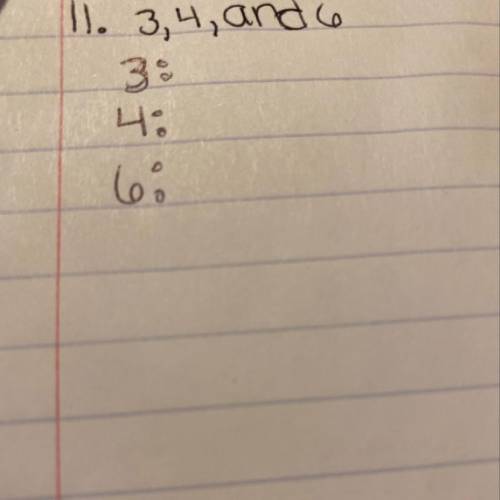 11. 3, 4, and 6
3:
4:
6: